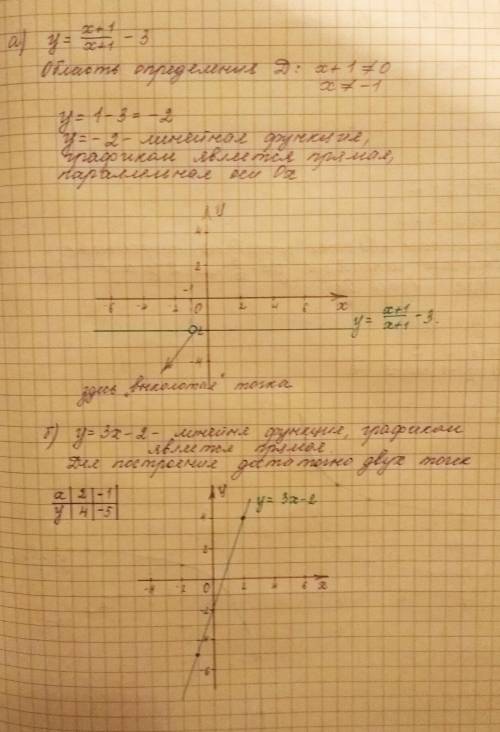 а) y = x+1/x+1 − 3
Область определения D: x+1≠0
x≠−1
y = 1−3 = −2
y = −2 − линейная функция,
графиком является прямая,
параллельная оси Ox
y
4
2
-1
-6 -4 -2 0 2 4 6 x
-2
y = x+1/x+1 − 3.
-4
здесь "выколотая" точка
б) y = 3x−2 − линейня функция, графиком
является прямая.
Для построения достаточно двух точек
x | 2 | −1 |
y | 4 | −5 |
y
y = 3x−2
4
2
-4 -2 0 2 4 6 x
-2
-4
-6